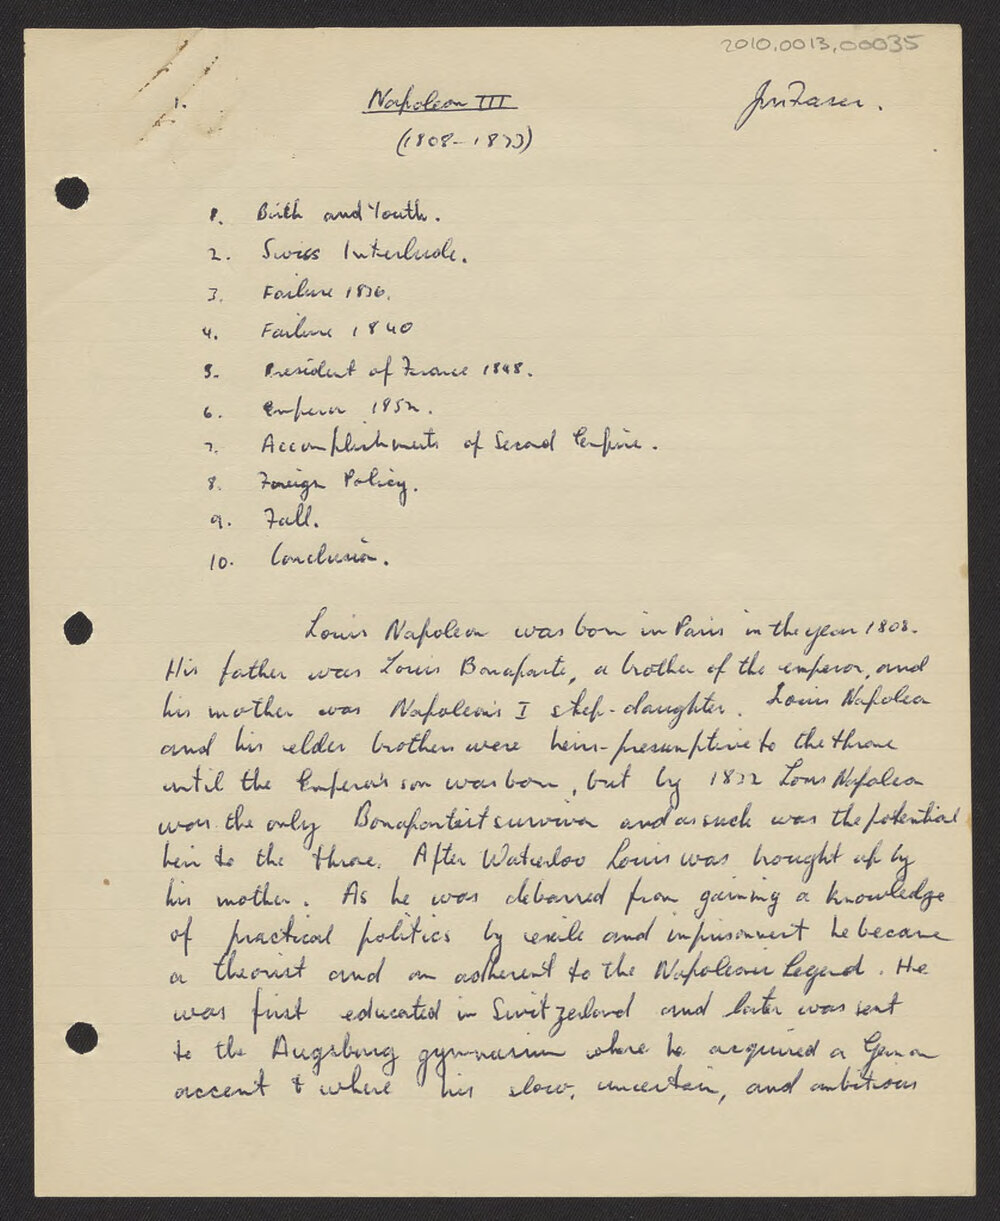 2010.0013.00035
1.
Napoleon III
(1808-1873)
1. Birth and Youth.
2. Swiss Interlude.
3. Failure 1836.
4. Failure 1840
5. President of France 1848.
6. Emperor 1852.
7. Accomplishments of Second Empire.
8. Foreign Policy.
9. Fall.
10. Conclusion.
Louis Napoleon was born in Paris in the year 1808.
His father was Louis Bonaparte, a brother of the emperor, and
his mother was Napoleon's I step-daughter. Louis Napoleon
and his elder brothers were heirs-presumptive to the throne
until the Emperor's son was born, but by 1832 Louis Napoleon
was the only Bonapartist survivor and as such was the potential
heir to the throne. After Waterloo Louis was brought up by
his mother. As he was debarred from gaining a knowledge
of practical politics by exile and imprisonment he became
a theorist and an adherent to the Napoleonic Legend. He
was first educated in Switzerland and later was sent
to the Augsburg gymnasium where he acquired a German
accent & where his slow, uncertain, and ambitious